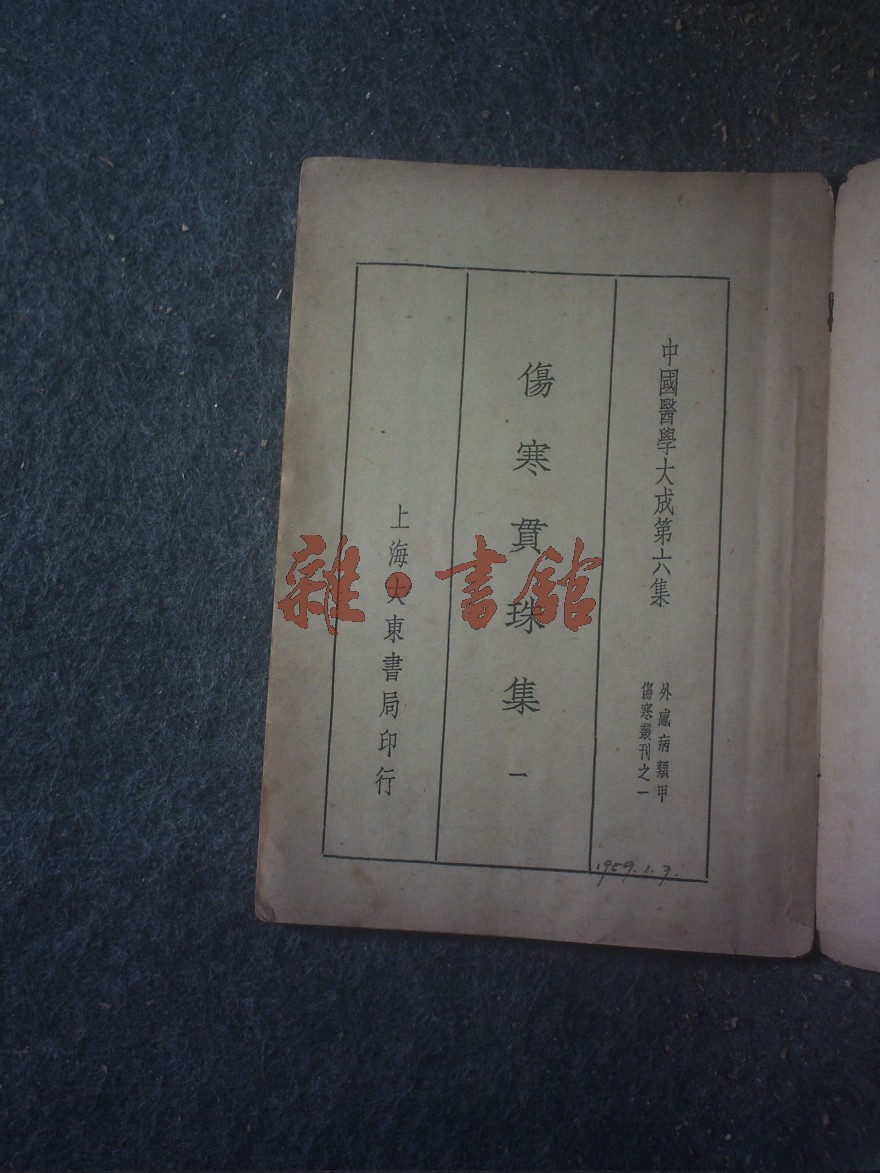 中國醫學大成第六集
外感病類甲
傷寒叢刊之一
傷寒貫珠集 一
上海大東書局印行
1959.1.3.
雜·書館